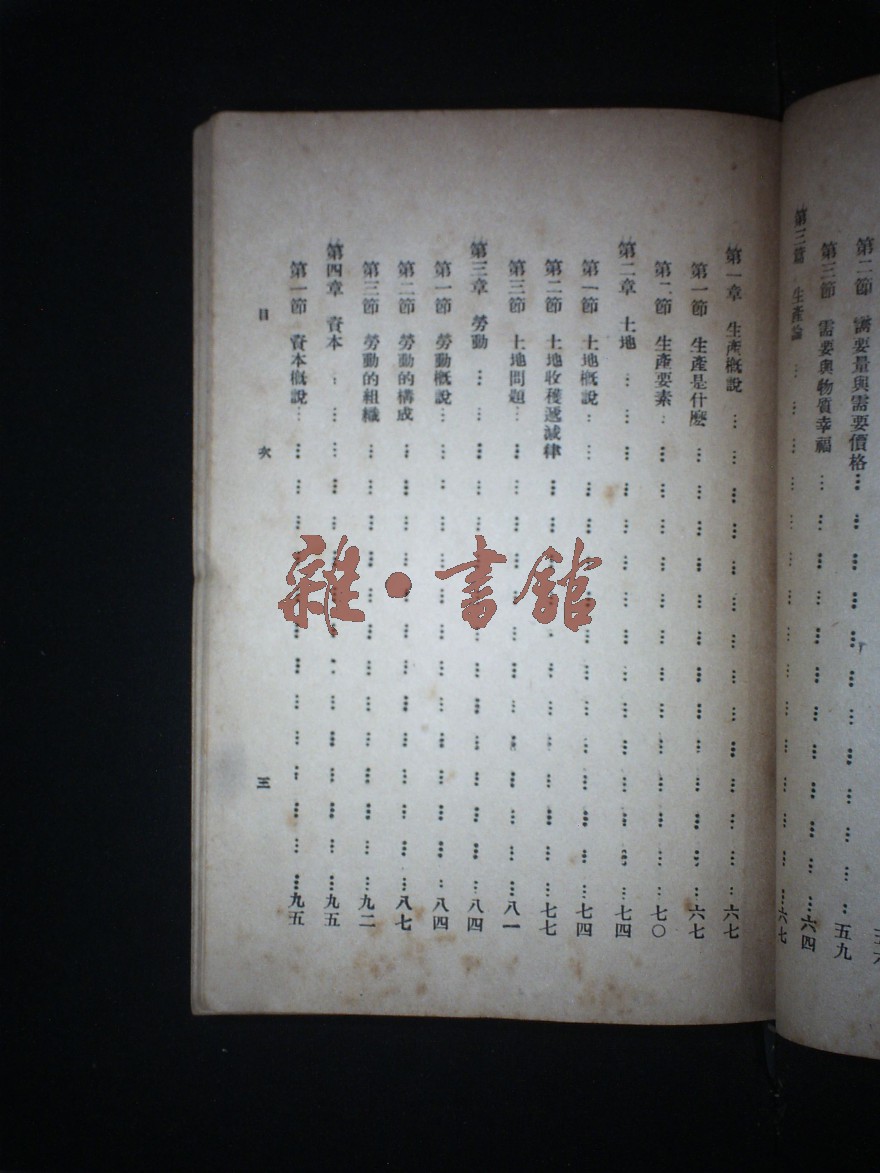 第二節 需要量與需要價格 五九
第三節 需要與物質幸福 六四
第三篇 生產論 六七
第一章 生產概說 六七
第一節 生產是什麽 六七
第二節 生產要素 七〇
第二章 土地 七四
第一節 土地概說 七四
第二節 土地收穫遞減律 七七
第三節 土地問題 八一
第三章 勞動 八四
第一節 勞動概說 八四
第二節 勞動的構成 八七
第三節 勞動的組織 九二
第四章 資本 九五
第一節 資本概說 九五
目次 三
雜·書館